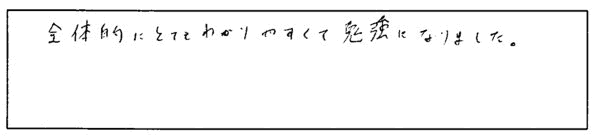 全体的にとてもわかりやすくて勉強になりました。